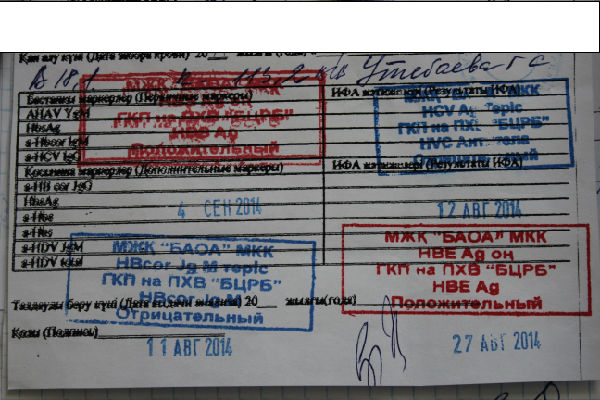 Қан алу күні (Дата забора крови) 20
Утебаева Г С
Бастапқы маркерлер (Первичные маркеры)
ИФА нәтижелері (Результаты ИФА)
AHAV YgM
HbsAg
a-Hbcor IgM
a-HCV IgG
Қосымша маркерлер (Дополнительные маркеры)
ИФА нәтижелері (Результаты ИФА)
a-HB cor IgG
HbsAg
a-Hbe
a-Hbs
a-HDV IgM
a-HDV total
МЖК
МКК
ГКП на ПХВ "БЦРБ"
HBE Ag
Положительный
МКК
HCV Ag теріс
ГКП на ПХВ "БЦРБ"
HVC Ант тела
4 СЕН 2014
12 АВГ 2014
МЖК "БАОА" МКК
HBcor Jg M теріс
ГКП на ПХВ "БЦРБ"
HBcor
Отрицательный
МЖК "БАОА" МКК
HBE Ag оң
ГКП на ПХВ "БЦРБ"
HBE Ag
Положительный
Талдауды беру күні (Дата выдачи анализа) 20 жылғы (года)
Қолы (Подпись)
11 АВГ 2014
27 АВГ 2014